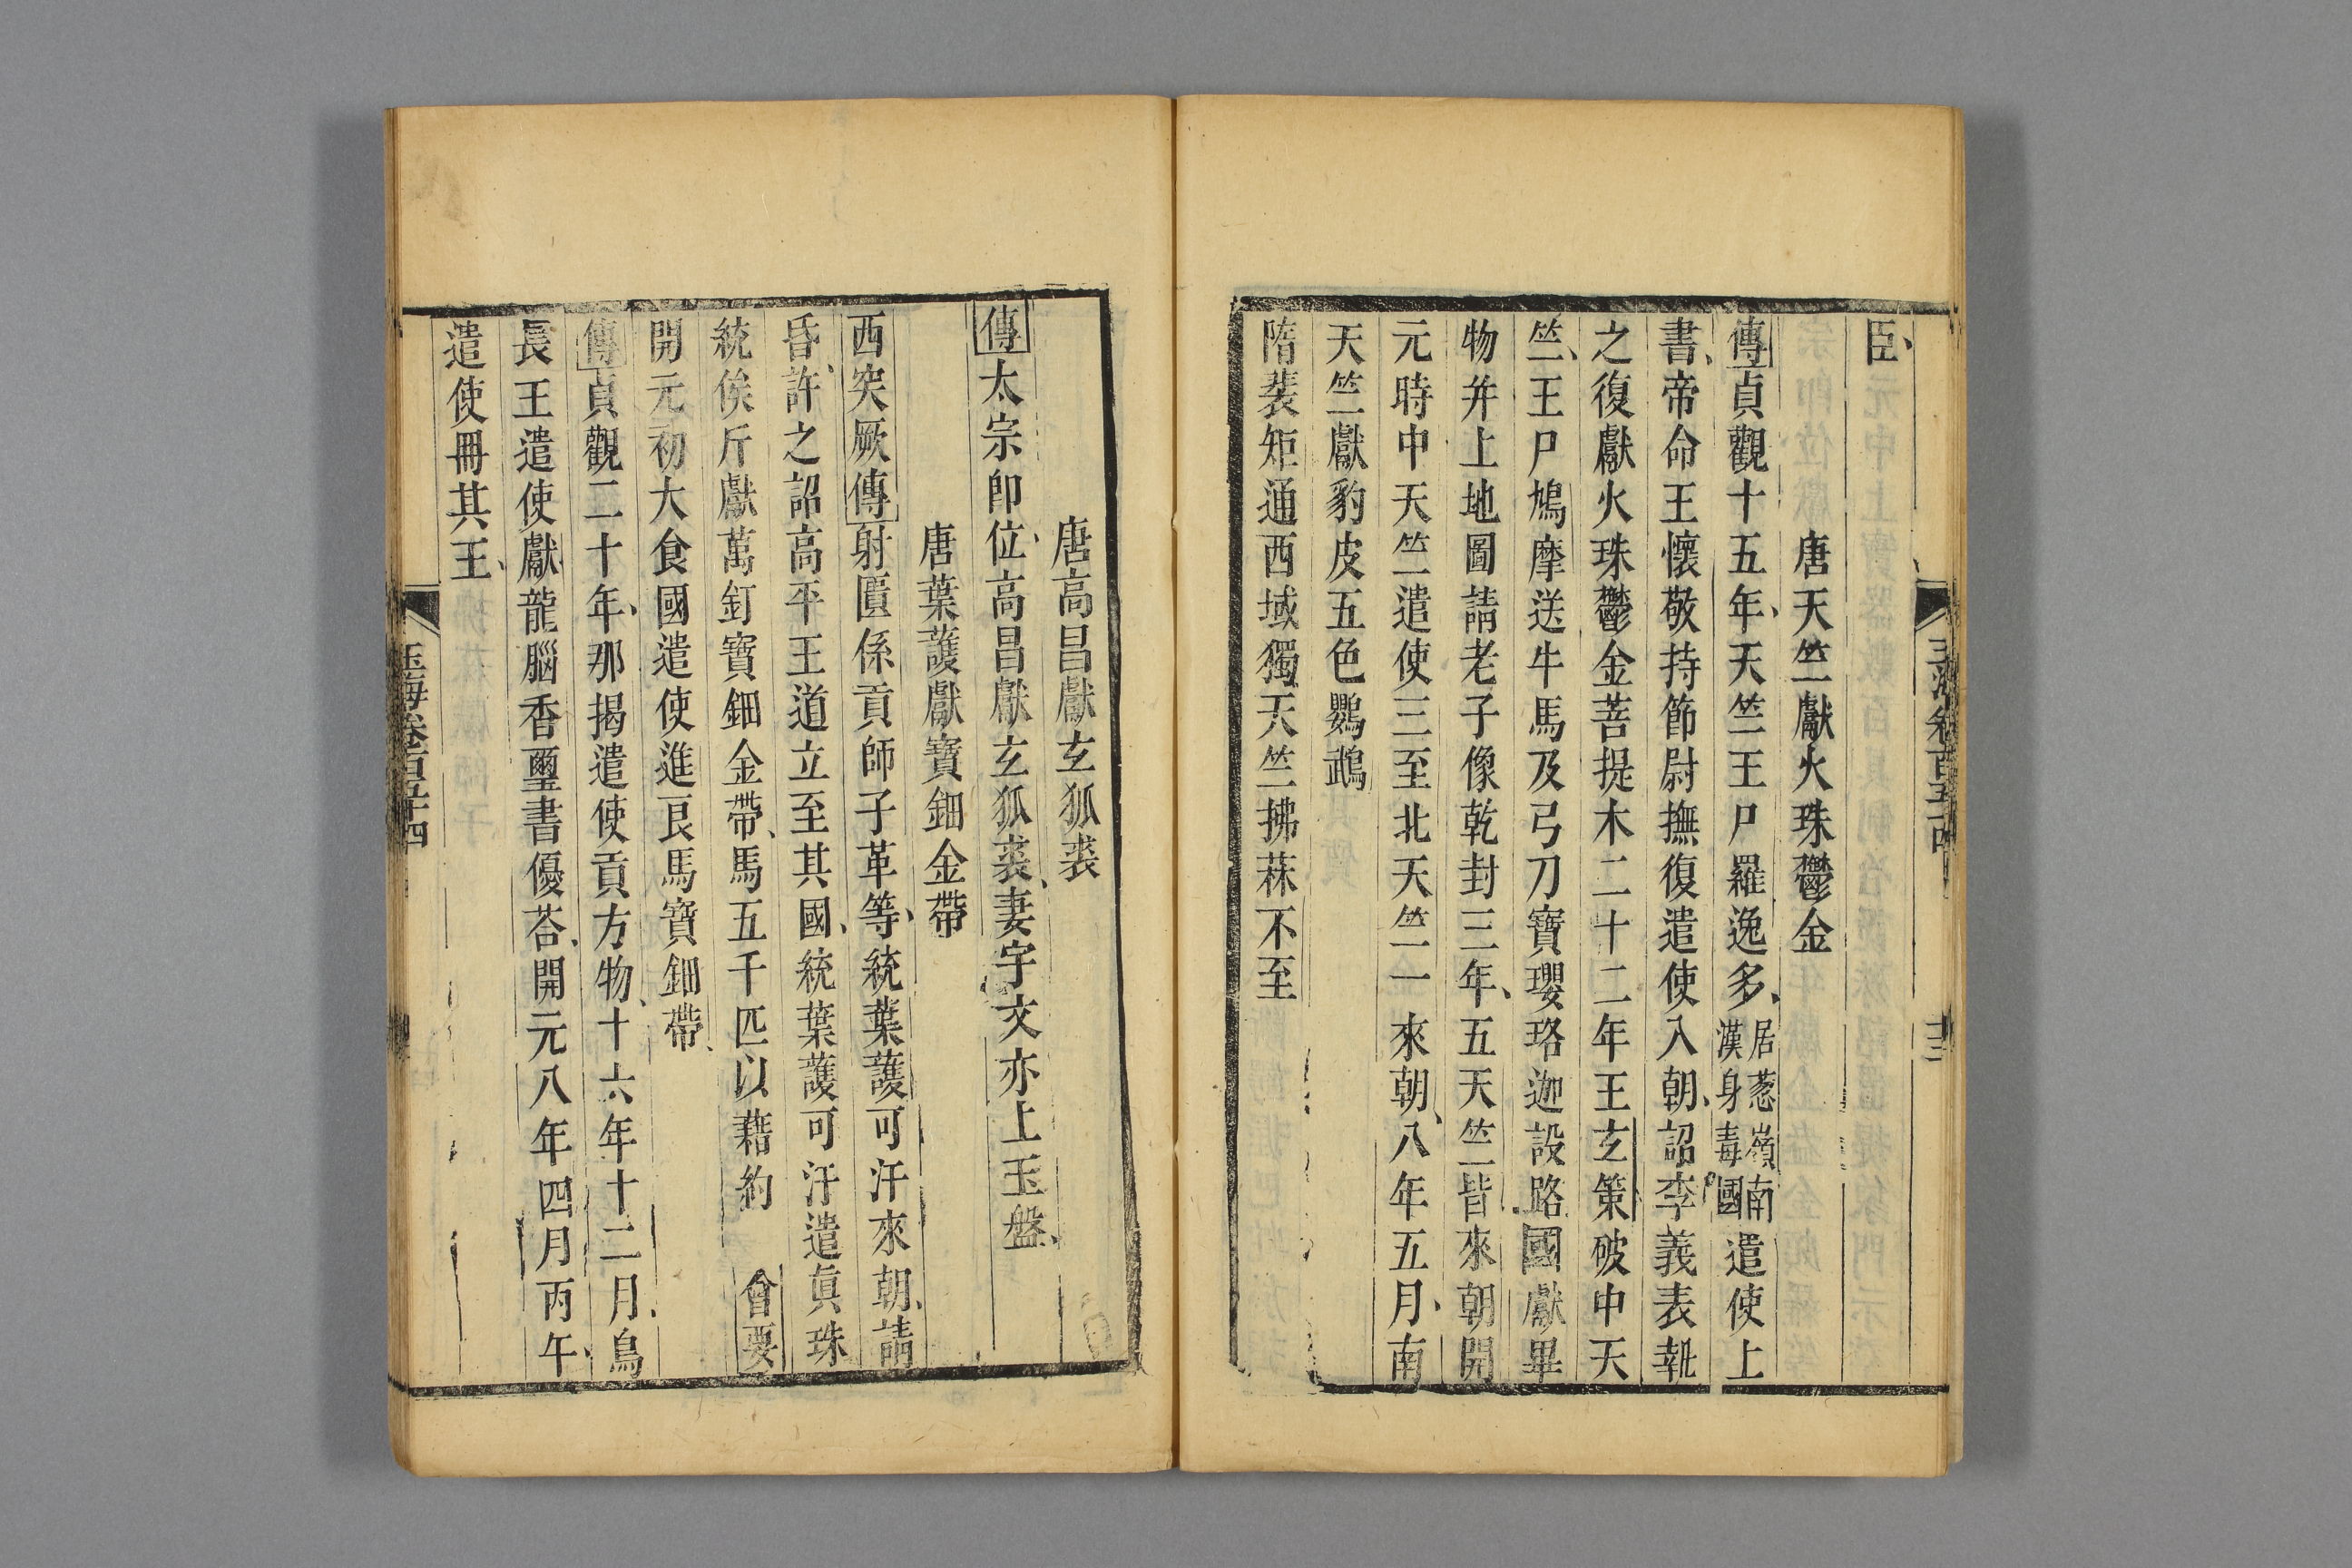 臣
唐天竺獻火珠鬱金
傳貞觀十五年天竺王尸羅逸多居蔥嶺南漢身毒國遣使上
書帝命王懷敬持節尉撫復遣使入朝詔李義表報
之復獻火珠鬱金菩提木二十二年王玄策破中天
竺王尸鳩摩送牛馬及弓刀寶瓔珞迦設路國獻異
物并上地圖請老子像乾封三年五天竺皆來朝開
元時中天竺遣使三至北天竺一來朝八年五月南
天竺獻豹皮五色鸚鵡
隋裴矩通西域獨天竺拂菻不至
唐高昌獻玄狐裘
傳太宗即位高昌獻玄狐裘妻宇文亦上玉盤
唐葉護獻寶鈿金帶
西突厥傳射匱係貢師子革等統葉護可汗來朝請
昏許之詔高平王道立至其國統葉護可汗遣眞珠
統俟斤獻萬釘寶鈿金帶馬五千匹以藉約 會要
開元初大食國遣使進良馬寶鈿帶
傳貞觀二十年那揭遣使貢方物十六年十二月烏
長王遣使獻龍腦香璽書優荅開元八年四月丙午
遣使冊其王
玉海卷百五十四